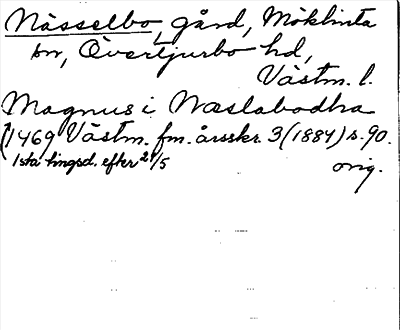 Nässelbo, gård, Möklinta
sn, Övertjurbo hd,
Västm. l.
Magnus i Næslabodha
1469 Västm. fm. årsskr. 3 (1884) s. 90.
1sta tingsd. efter 21/5 orig.